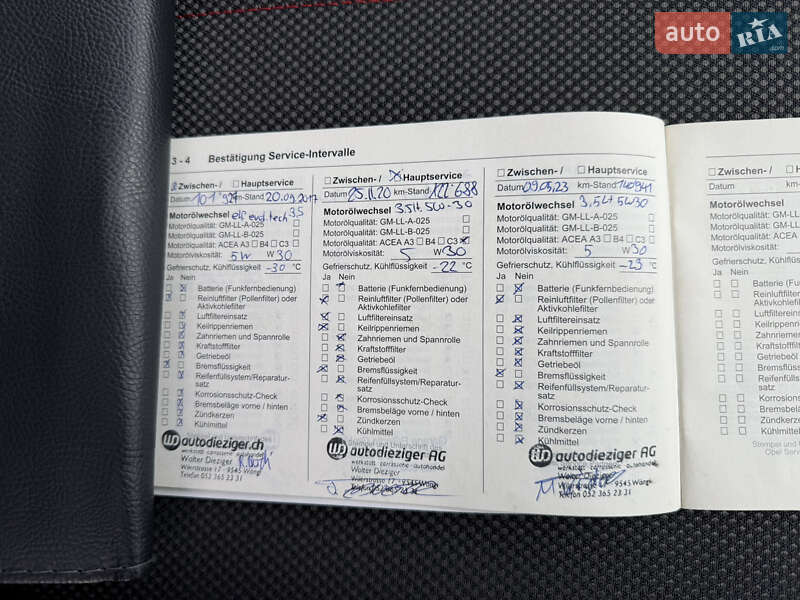 auto RIA
3 - 4 Bestätigung Service-Intervalle
Zwischen- / Hauptservice
Datum km-Stand 20.09.2017
Motorölwechsel 3,5
Motorölqualität: GM-LL-A-025
Motorölqualität: GM-LL-B-025
Motorölqualität: ACEA A3 B4 C3
Motorölviskosität: 5W W 30
Gefrierschutz, Kühlflüssigkeit -30 °C
Ja Nein
Batterie (Funkfernbedienung)
Reinluftfilter (Pollenfilter) oder
Aktivkohlefilter
Luftfiltereinsatz
Keilrippenriemen
Zahnriemen und Spannrolle
Kraftstofffilter
Getriebeöl
Bremsflüssigkeit
Reifenfüllsystem/Reparatur-
satz
Korrosionsschutz-Check
Bremsbeläge vorne / hinten
Zündkerzen
Kühlmittel
autodieziger.ch
werkstatt carrosserie autohandel
Walter Dieziger
Wilerstrasse 17 - 9545 Wängi
Telefon 052 365 23 31
Zwischen- / Hauptservice
Datum 25.11.20 km-Stand 122 688
Motorölwechsel 3.5H. 5W-30
Motorölqualität: GM-LL-A-025
Motorölqualität: GM-LL-B-025
Motorölqualität: ACEA A3 B4 C3
Motorölviskosität: 5 W 30
Gefrierschutz, Kühlflüssigkeit -22 °C
Ja Nein
Batterie (Funkfernbedienung)
Reinluftfilter (Pollenfilter) oder
Aktivkohlefilter
Luftfiltereinsatz
Keilrippenriemen
Zahnriemen und Spannrolle
Kraftstofffilter
Getriebeöl
Bremsflüssigkeit
Reifenfüllsystem/Reparatur-
satz
Korrosionsschutz-Check
Bremsbeläge vorne / hinten
Zündkerzen
Kühlmittel
Stempel und Unterschrift des
autodieziger AG
werkstatt carrosserie autohandel
Walter Dieziger
Wilerstrasse 17 - 9545 Wängi
Zwischen- / Hauptservice
Datum 09.05.23 km-Stand 140941
Motorölwechsel 3.5H 5W30
Motorölqualität: GM-LL-A-025
Motorölqualität: GM-LL-B-025
Motorölqualität: ACEA A3 B4 C3
Motorölviskosität: 5 W 30
Gefrierschutz, Kühlflüssigkeit -23 °C
Ja Nein
Batterie (Funkfernbedienung)
Reinluftfilter (Pollenfilter) oder
Aktivkohlefilter
Luftfiltereinsatz
Keilrippenriemen
Zahnriemen und Spannrolle
Kraftstofffilter
Getriebeöl
Bremsflüssigkeit
Reifenfüllsystem/Reparatur-
satz
Korrosionsschutz-Check
Bremsbeläge vorne / hinten
Zündkerzen
Kühlmittel
autodieziger AG
werkstatt carrosserie autohandel
Walter Dieziger
Wilerstrasse 17 9545 Wängi
Telefon 052 365 23 31
Zwischen- /
Datum
Motorölwechsel
Motorölqualität: GM-
Motorölqualität: GM-
Motorölqualität: ACE
Motorölviskosität:
Gefrierschutz, Kühl
Ja Nein
Batterie (F
Reinluftfilt
Aktivkohle
Luftfilterei
Keilrippen
Zahnriem
Kraftstoff
Getriebeö
Bremsflüs
Reifenfül
satz
Korrosio
Bremsbe
Zündker
Kühlmitt
Stempel und
Opel Serv